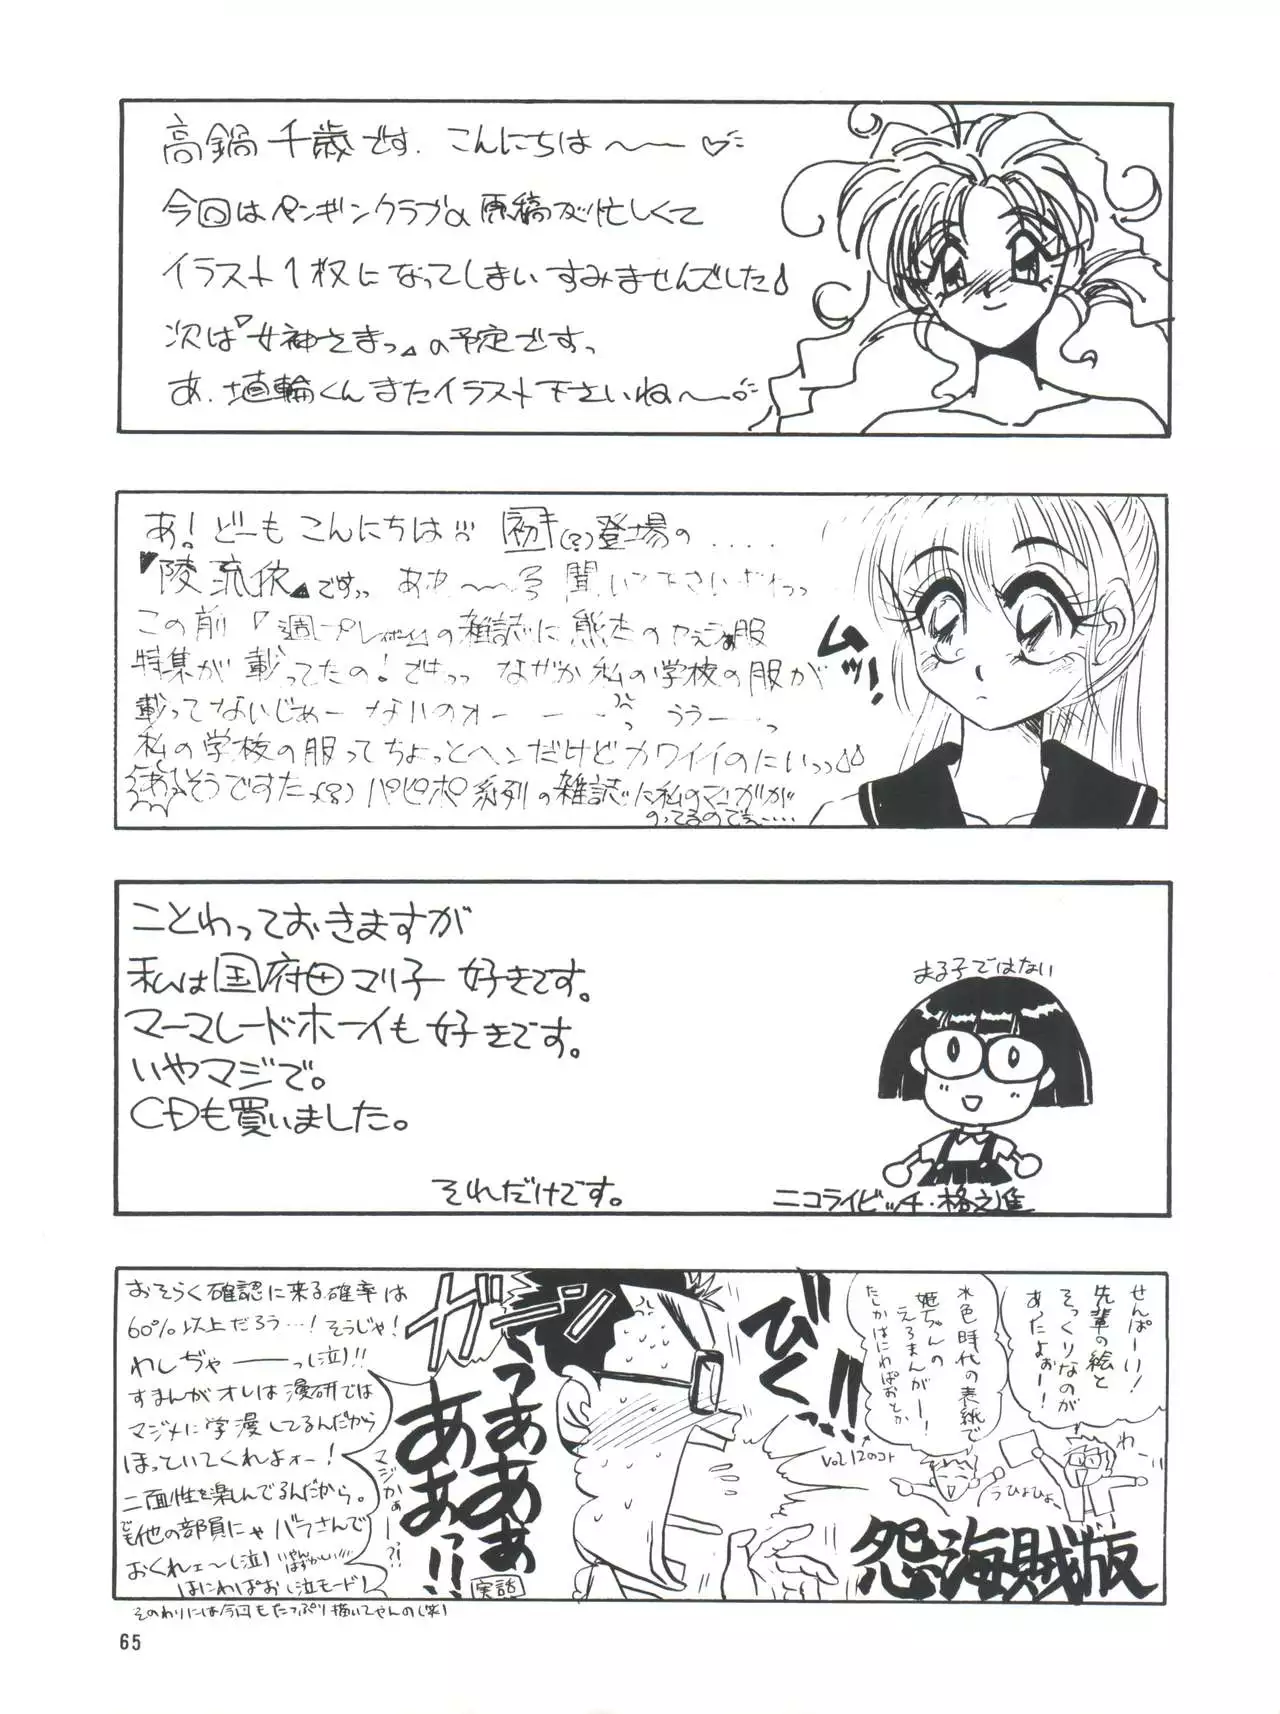 高鍋千歳です. こんにちは〜〜♡
今回はペンギンクラブの原稿が忙しくて
イラスト1枚になってしまいすみませんでした
次は『女神さまっ』の予定ですっ
あ.埴輪くんまたイラスト下さいね〜〜
あ!どーもこんにちは!!! 初(?)登場の....
『陵流依』ですっっ
この前『週一プレイボーイ』の雑誌に
特集が載ってたの!ですっっ なぜか私の学校の服が
載ってないじゃーないのォー ううーーっ
私の学校の服ってちょっとヘンだけどカワイイのにいっっ
あ、そうですた(?) パピポ系列の雑誌に私のマンガが
のってるのでぇ・・・・
ムッ!
ことわっておきますが
私は国府田マリ子好きです。
マーマレードボーイも好きです。
いやマジで。
CDも買いました。
それだけです。
まる子ではない
ニコライビッチ・格之進
おそらく確認に来る確率は
60%以上だろう…!そうじゃ!
わしぢゃーーーっ(泣)!!
すまんがオレは漫研では
マジメに学漫してるんだから
ほっていてくれよォー!
二面性を楽しんでるんだから。
でも他の部員にゃバラさんで
おくれェ〜(泣) いやんはずかしい!!!
はにわぱお(泣モード)
そのわりには今回もたっぷり描いてやんの(笑)
マジかぁーー?!
ガーン
うぁあぁ
ああぁっ!!
実話
びくぅ!!
せんぱーい!
先輩の絵と
そっくりなのが
あったよぉー!
水色時代の表紙で
姫ちゃんの
えろまんがー!
たしかはにわぱおとか
vol.12のコト
わー
うひょひょー
怨海賊版
65